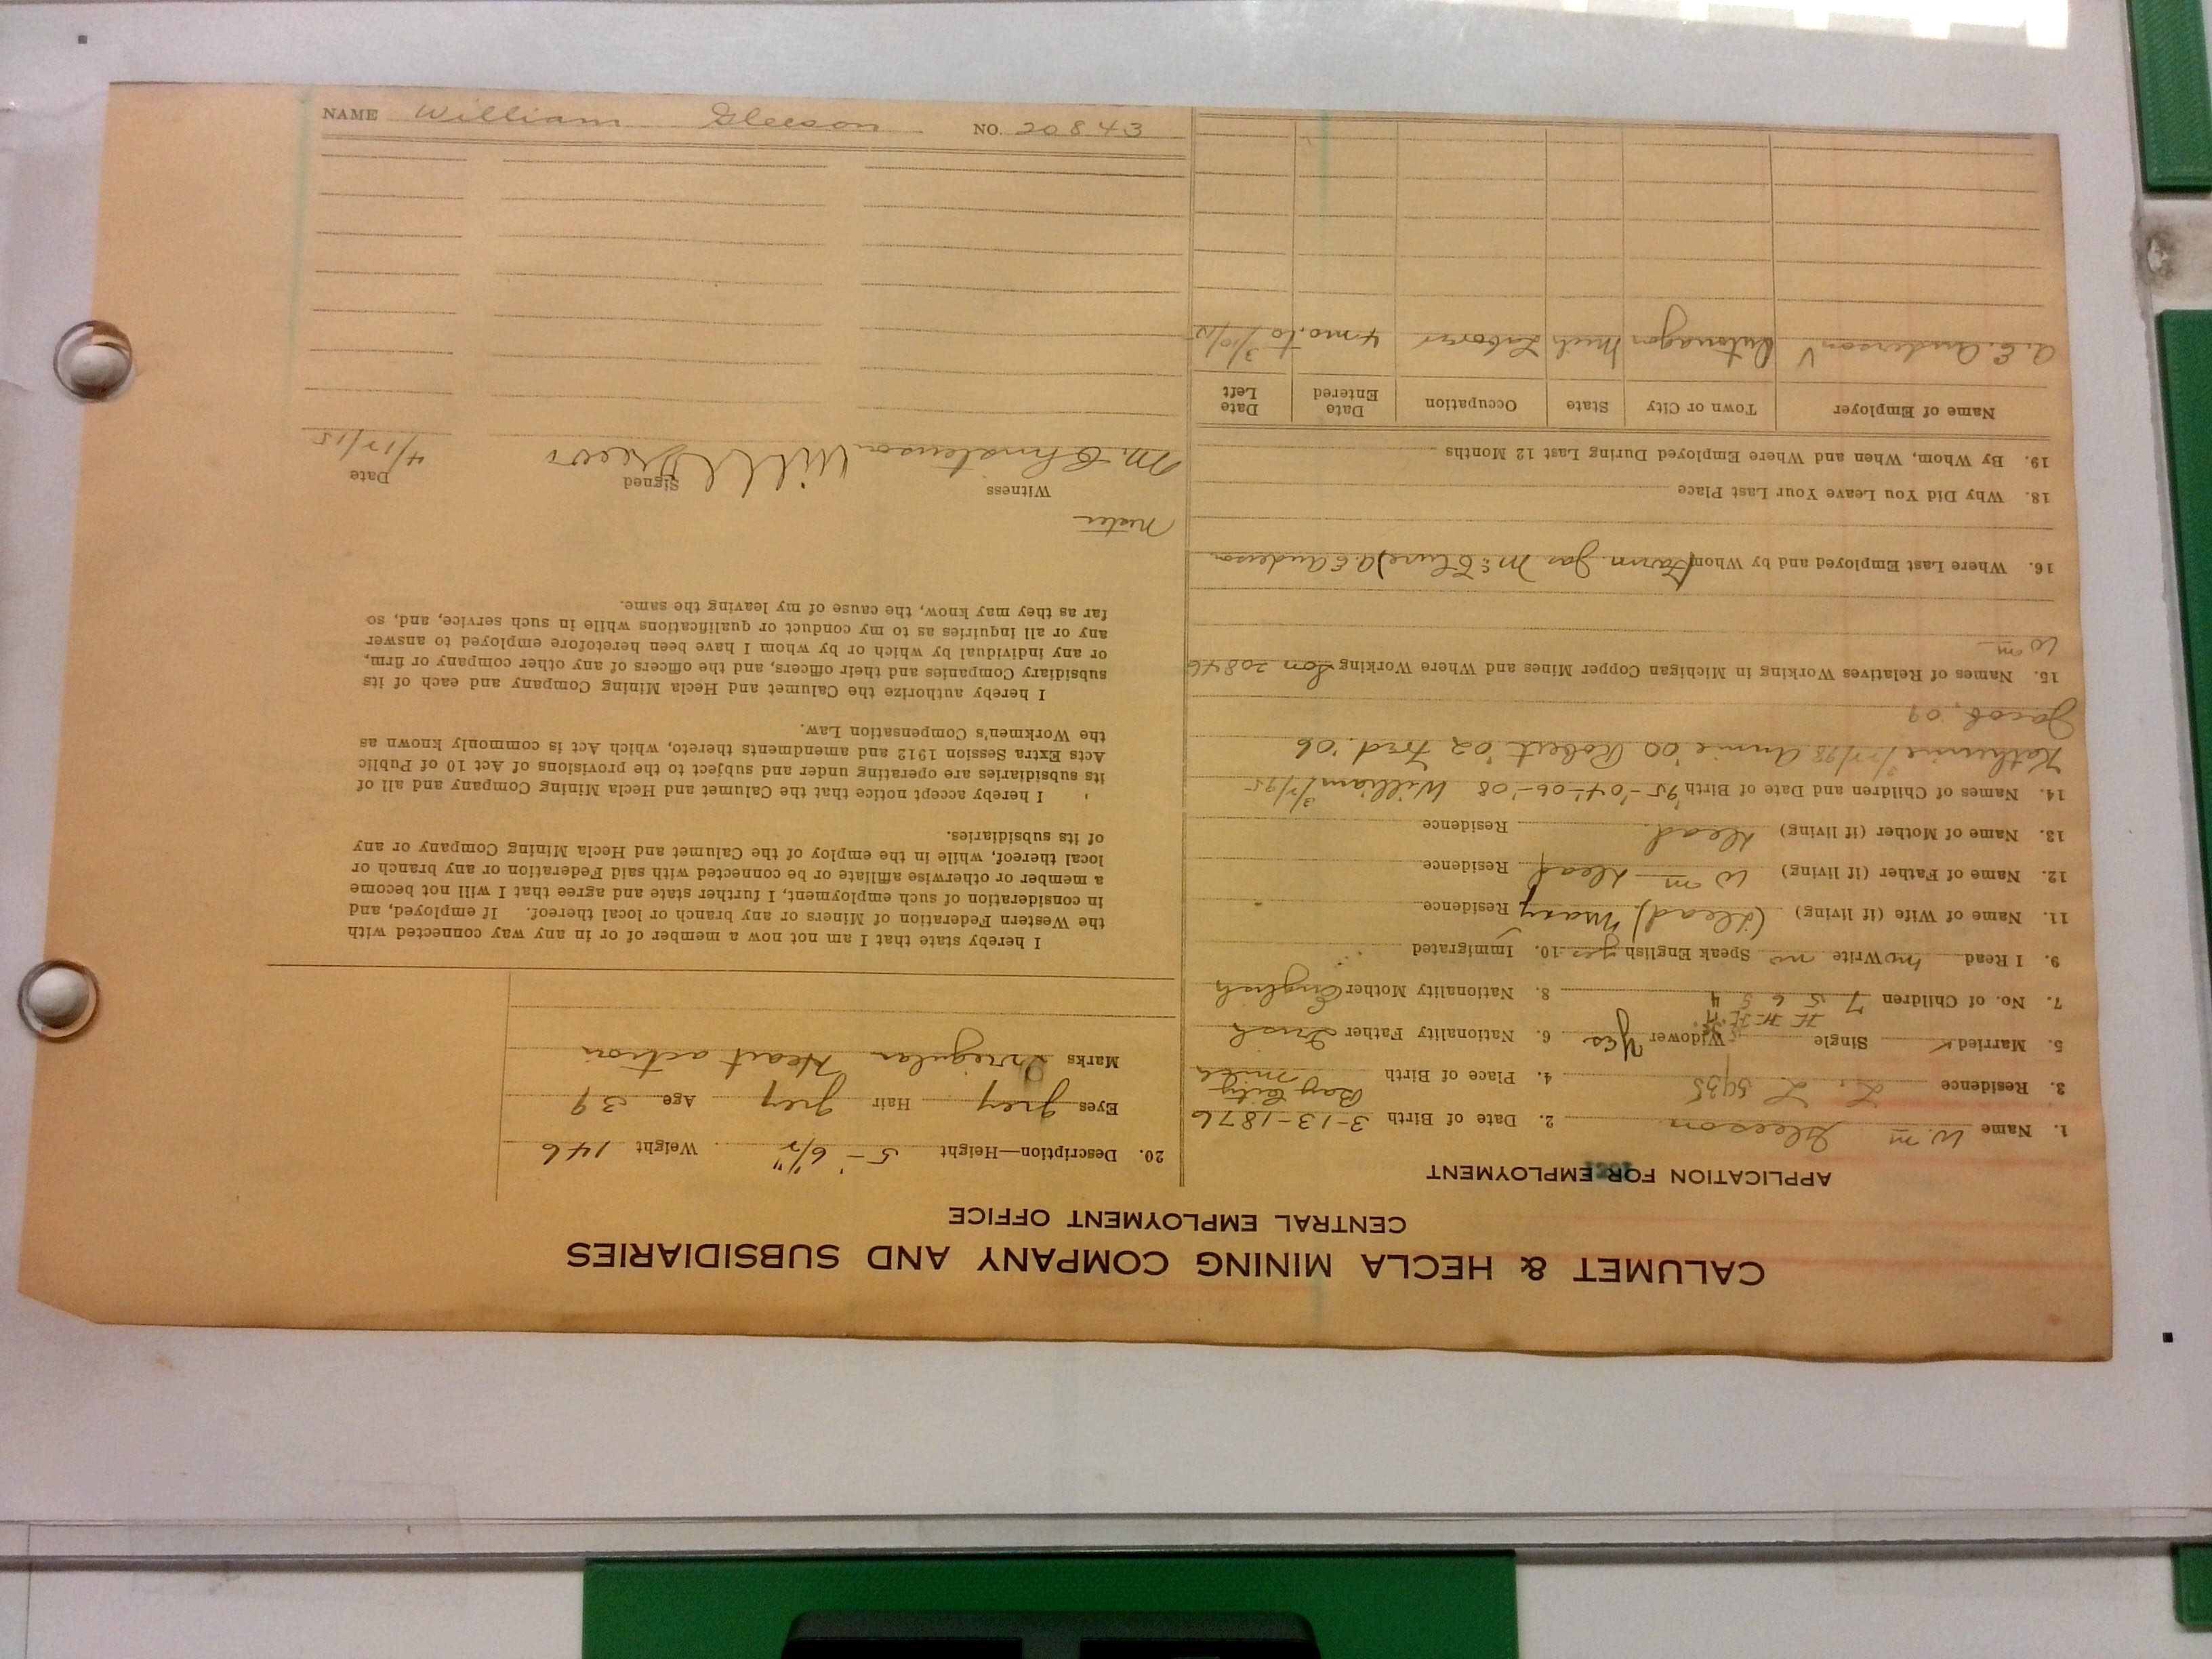 CALUMET & HECLA MINING COMPANY AND SUBSIDIARIES
CENTRAL EMPLOYMENT OFFICE
APPLICATION FOR EMPLOYMENT
1. Name Wm Gleeson 2. Date of Birth 3-13-1876
3. Residence L. L. 5435 4. Place of Birth Bay City Mich
5. Married Single Widower Yes 6. Nationality Father Irish
7. No. of Children 7 8. Nationality Mother English
9. I Read no Write no Speak English yes 10. Immigrated
11. Name of Wife (if living) (dead) Mary Residence
12. Name of Father (if living) Wm - dead Residence
13. Name of Mother (if living) dead. Residence
14. Names of Children and Date of Birth '95-'04-'06-'08 William 3/7/95
Katherine 3/17/98 Annie '00 Robert '02 Fred. '06
Jacob, '09
15. Names of Relatives Working in Michigan Copper Mines and Where Working Son 20846
Wm
16. Where Last Employed and by Whom (Farm Jas McClure) A. E. Anderson
18. Why Did You Leave Your Last Place
19. By Whom, When and Where Employed During Last 12 Months
Name of Employer Town or City State Occupation Date Entered Date Left
A. E. Anderson Ontonagon Mich Laborer 4 mo. to 3/10/15
20. Description—Height 5-6½" Weight 146
Eyes grey Hair grey Age 39
Marks Irregular Heart action
I hereby state that I am not now a member of or in any way connected with
the Western Federation of Miners or any branch or local thereof. If employed, and
in consideration of such employment, I further state and agree that I will not become
a member or otherwise affiliate or be connected with said Federation or any branch or
local thereof, while in the employ of the Calumet and Hecla Mining Company or any
of its subsidiaries.
I hereby accept notice that the Calumet and Hecla Mining Company and all of
its subsidiaries are operating under and subject to the provisions of Act 10 of Public
Acts Extra Session 1912 and amendments thereto, which Act is commonly known as
the Workmen's Compensation Law.
I hereby authorize the Calumet and Hecla Mining Company and each of its
subsidiary Companies and their officers, and the officers of any other company or firm,
or any individual by which or by whom I have been heretofore employed to answer
any or all inquiries as to my conduct or qualifications while in such service, and, so
far as they may know, the cause of my leaving the same.
Witness Signed Date
M. Christenson Will 4/17/15
NAME William Gleeson NO. 20843